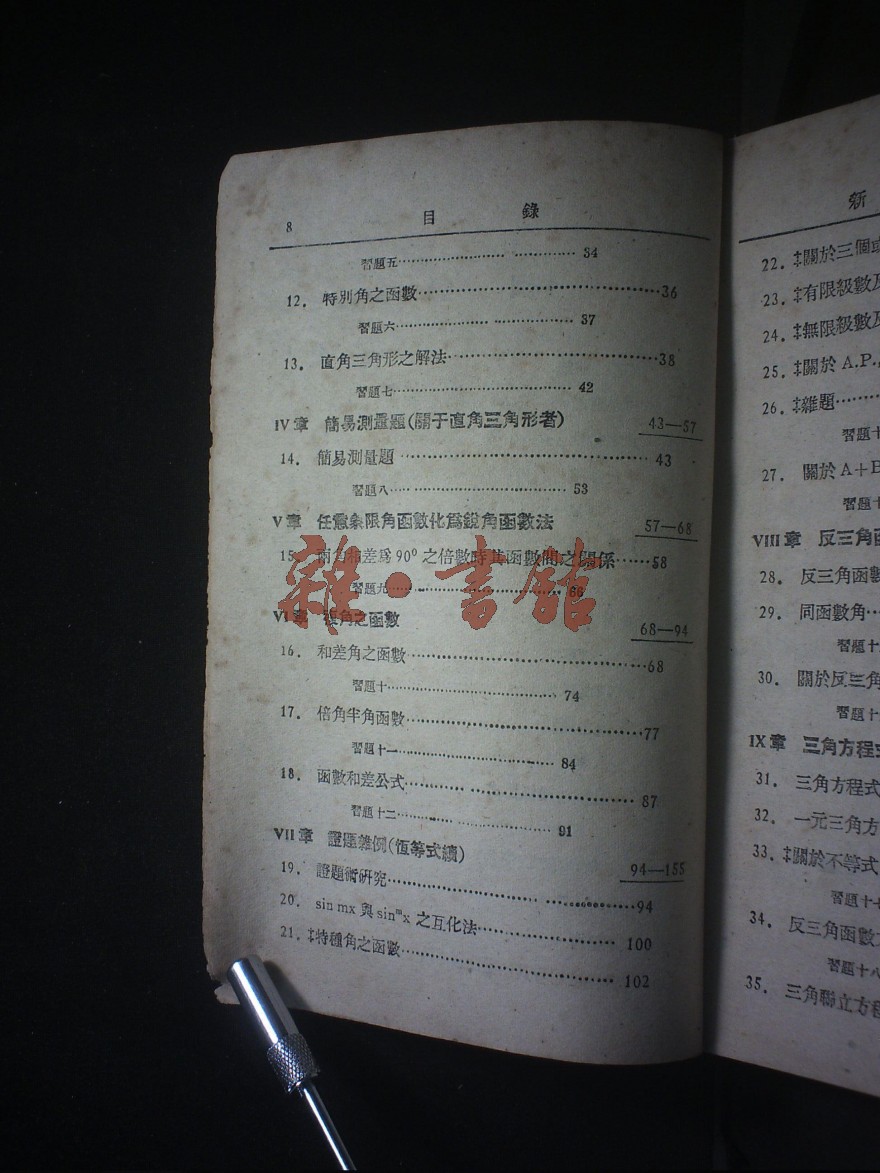 8 目 錄
習題五 34
12. 特別角之函數 36
習題六 37
13. 直角三角形之解法 38
習題七 42
IV章 簡易測量題(關于直角三角形者) 43—57
14. 簡易測量題 43
習題八 53
V章 任意象限角函數化爲銳角函數法 57—68
15. 兩角和差爲90°之倍數時其函數間之關係 58
習題九 66
雜·書館
VI章 複角之函數 68—94
16. 和差角之函數 68
習題十 74
17. 倍角半角函數 77
習題十一 84
18. 函數和差公式 87
習題十二 91
VII章 證題雜例(恆等式續) 94—155
19. 證題術研究 94
20. sin mx 與 sinᵐx 之互化法 100
21. ‡特種角之函數 102
新
22. ‡關於三個或
23. ‡有限級數及
24. ‡無限級數及
25. ‡關於 A.P.,
26. ‡雜題
習題十
27. 關於 A+B
習題十
VIII章 反三角函
28. 反三角函數
29. 同函數角
習題十
30. 關於反三角
習題十
IX章 三角方程式
31. 三角方程式
32. 一元三角方
33. ‡關於不等式
習題十七
34. 反三角函數
習題十八
35. 三角聯立方程